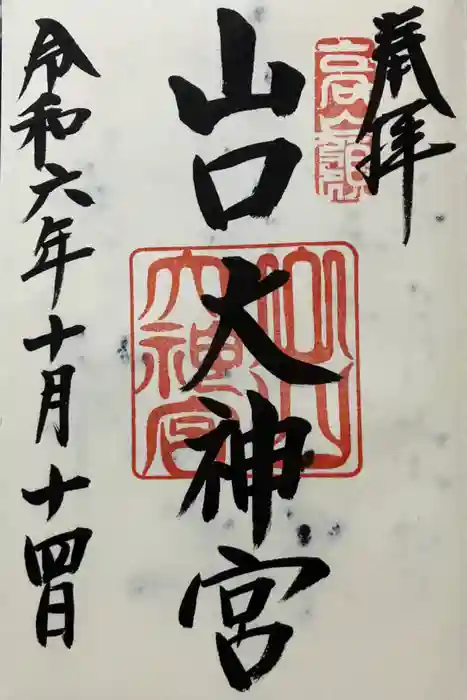 奉拝
高嶺
山口大神宮
山口
大神宮
令和六年十月十四日